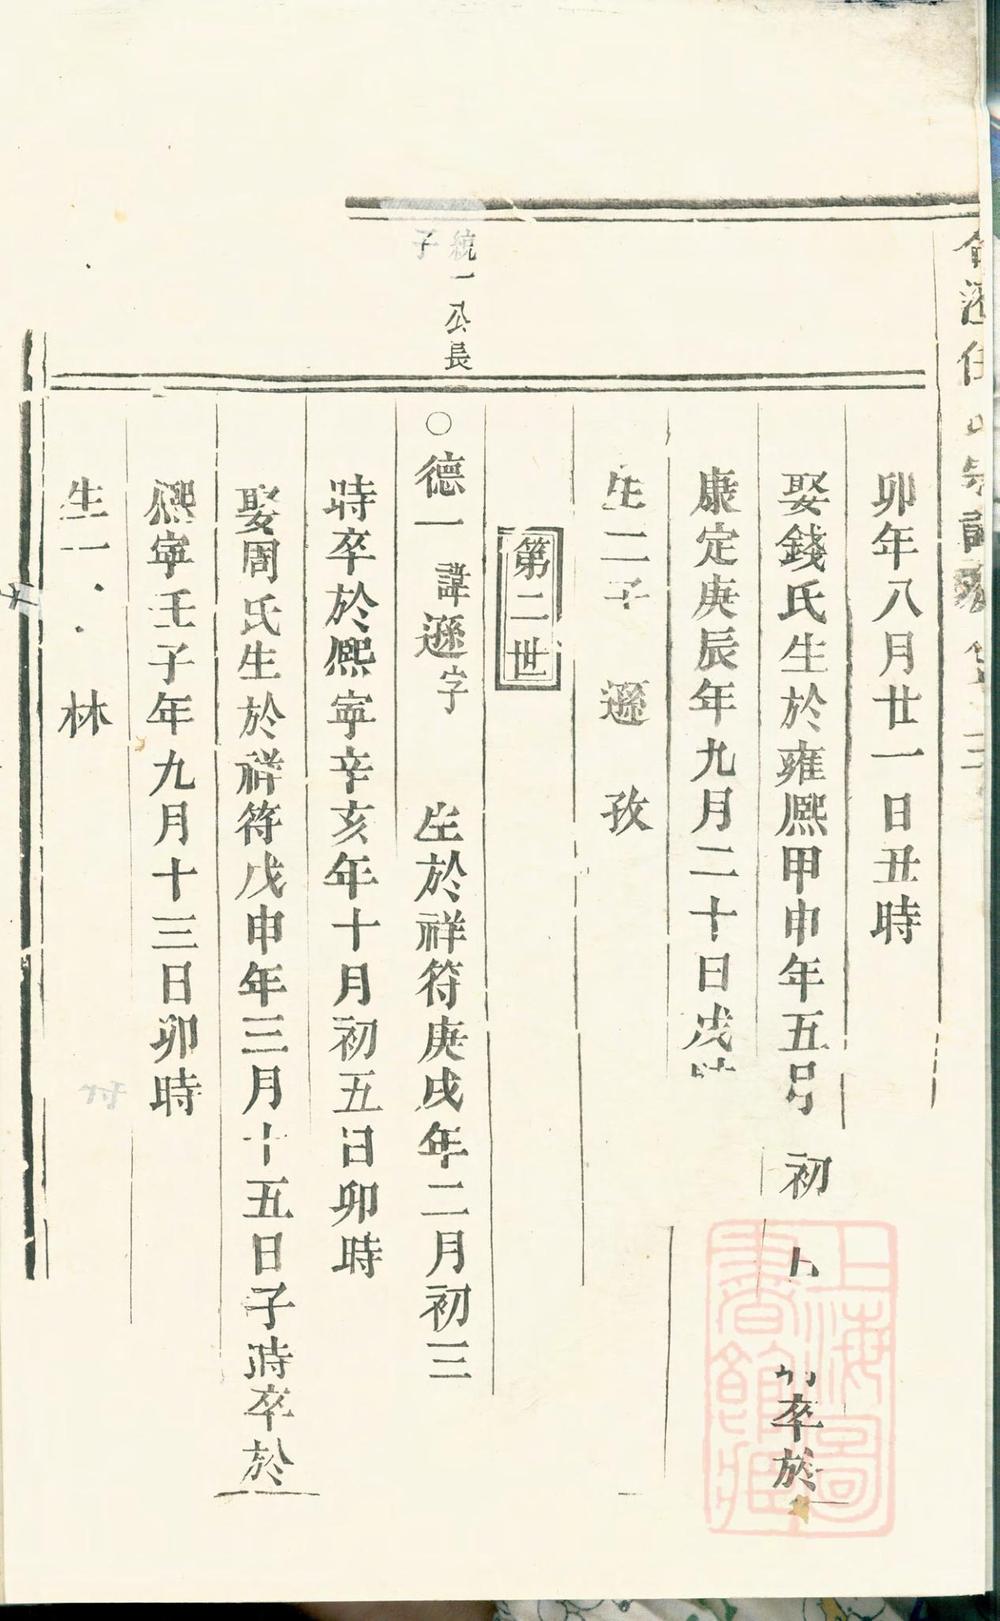 卯年八月廿一日丑時
娶錢氏生於雍熈甲申年五月初 卒於
康定庚辰年九月二十日戌時
生二子 遜 孜
第二世
統一公長
子
○德一 諱遜字 生於祥符庚戌年二月初三
時卒於熈寧辛亥年十月初五日卯時
娶周氏生於祥符戊申年三月十五日子時卒於
熈寧壬子年九月十三日卯時
生一 林
上海圖書館藏